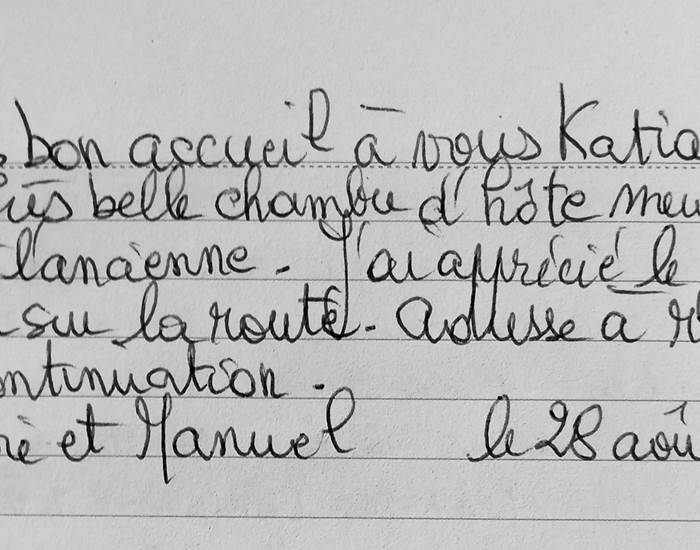 bon accueil à vous Katia
très belle chambre d'hôte meu
l'ancienne. J'ai apprécié le
sur la route. Adresse à r
ontinuation.
et Manuel le 28 aoû